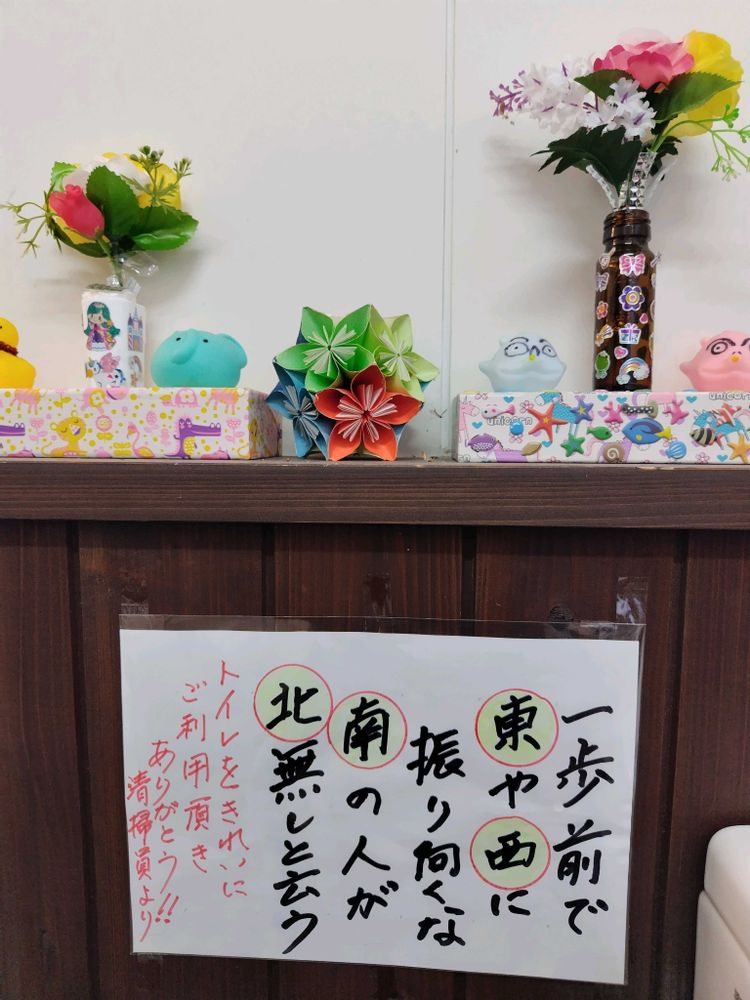 一歩前で
東や西に
振り向くな
南の人が
北無しと云う
トイレをきれいに
ご利用頂き
ありがとう!!
清掃員より
unicorn
unicorn